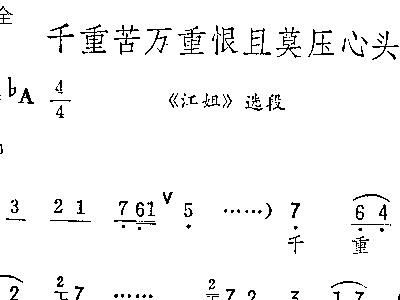 全
千重苦万重恨且莫压心头
♭A 4/4
《江姐》选段
3 2 1 7 6 1 ∨ 5 ……) 7 6 4
千 重
2 2 7 …… 2 7 2 3 1 7